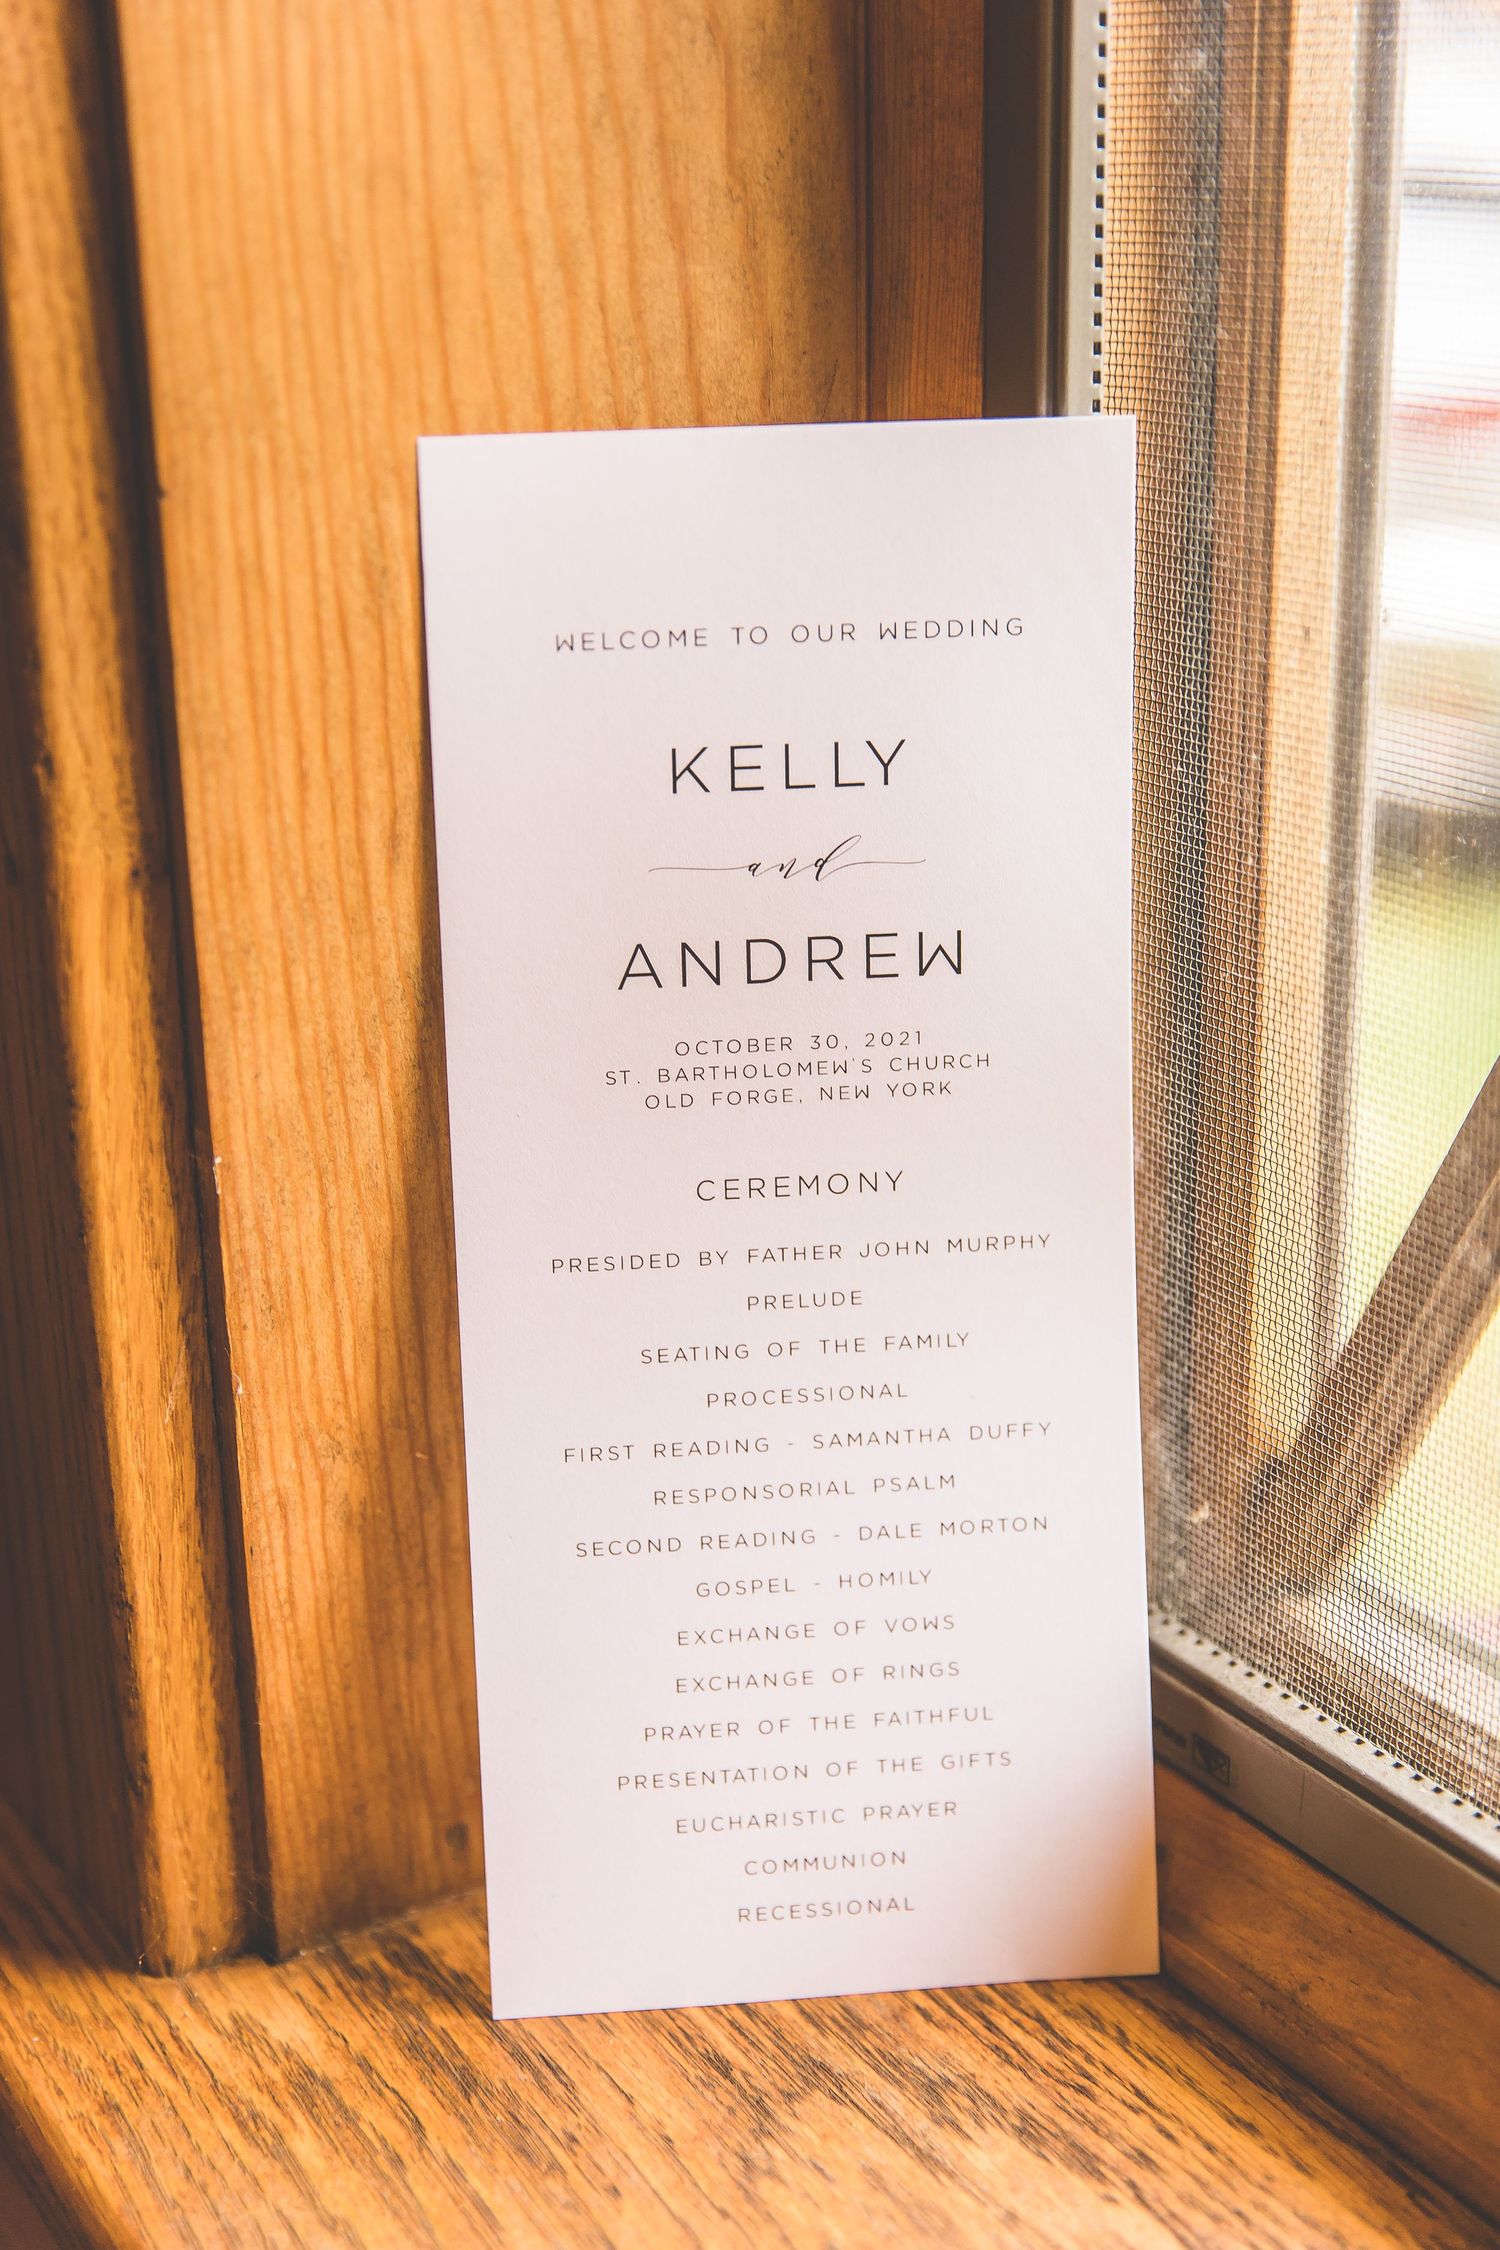 WELCOME TO OUR WEDDING
KELLY
and
ANDREW
OCTOBER 30, 2021
ST. BARTHOLOMEW'S CHURCH
OLD FORGE, NEW YORK
CEREMONY
PRESIDED BY FATHER JOHN MURPHY
PRELUDE
SEATING OF THE FAMILY
PROCESSIONAL
FIRST READING - SAMANTHA DUFFY
RESPONSORIAL PSALM
SECOND READING - DALE MORTON
GOSPEL - HOMILY
EXCHANGE OF VOWS
EXCHANGE OF RINGS
PRAYER OF THE FAITHFUL
PRESENTATION OF THE GIFTS
EUCHARISTIC PRAYER
COMMUNION
RECESSIONAL